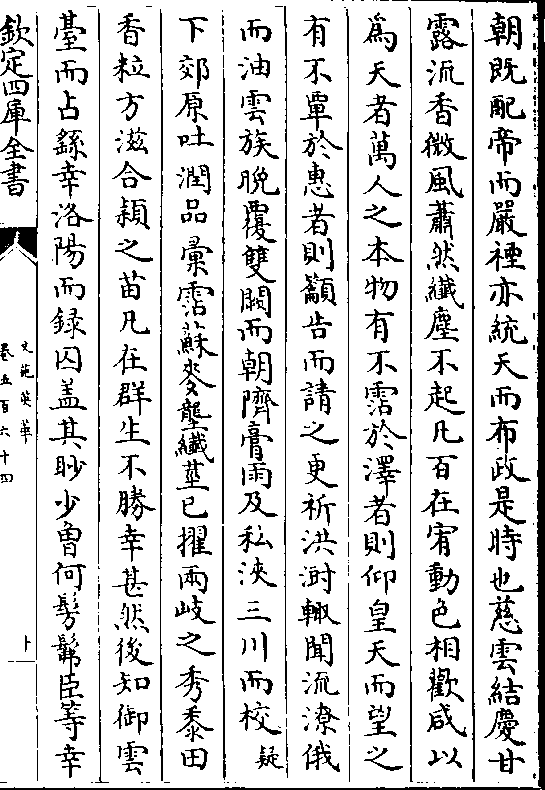 朝既配帝而嚴禋亦統天而布政是時也慈雲結慶甘
露流香微風蕭然纖塵不起凡百在宥動色相歡咸以
爲天者萬人之本物有不霑於澤者則仰皇天而望之
有不覃於惠者則籲告而請之更祈洪澍輙聞流潦俄
而油雲族晩覆雙闕而朝隮膏雨及私浹三川而校疑
下郊原吐潤品彚霑蘇麥壟纖莖已擢兩岐之秀黍田
香粒方滋合穎之苗凡在群生不勝幸甚然後知御雲
臺而占繇幸洛陽而録囚盖其眇少曽何髣髴臣等幸
欽定四庫全書
文苑英華
卷五百六十四